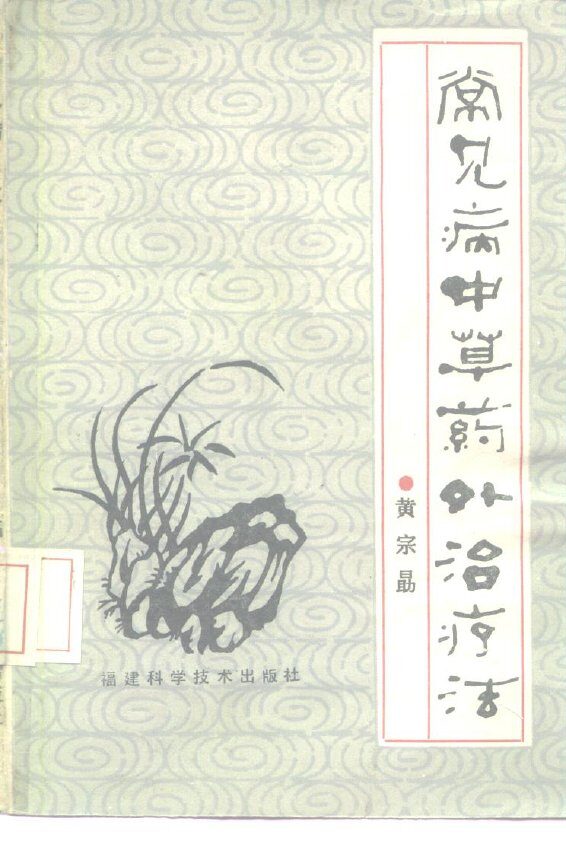 常见病中草药外治疗法
黄宗勗
福建科学技术出版社